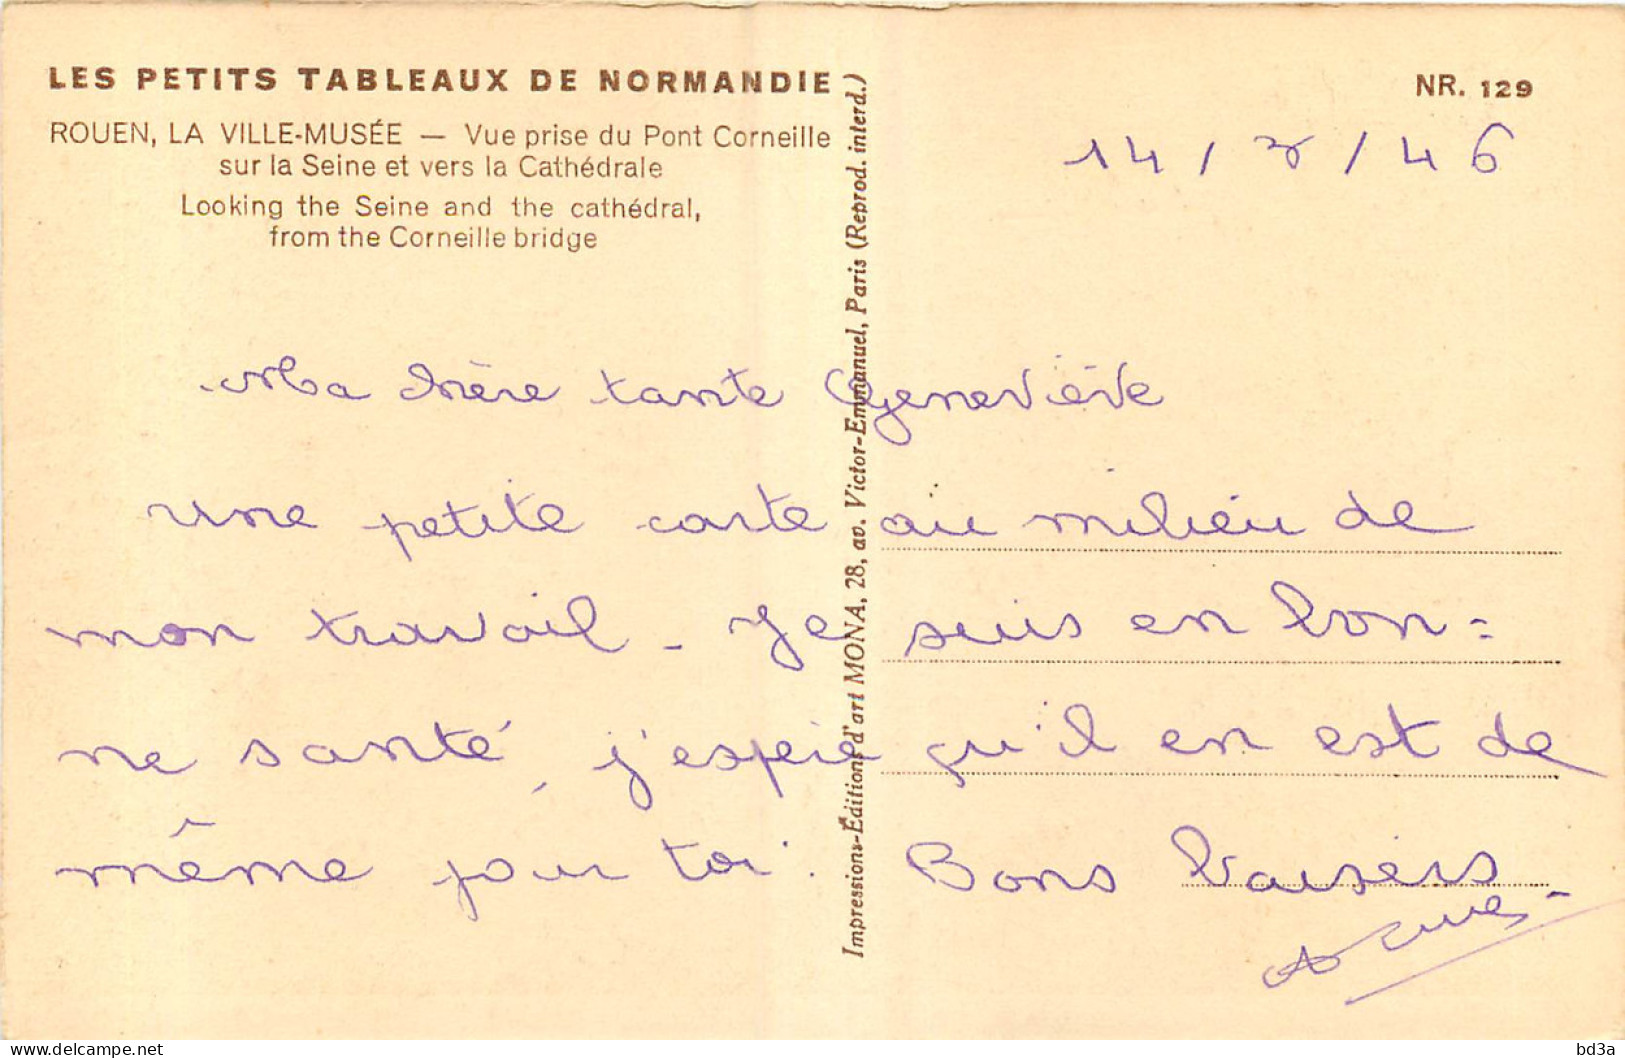 LES PETITS TABLEAUX DE NORMANDIE
ROUEN, LA VILLE-MUSÉE — Vue prise du Pont Corneille
sur la Seine et vers la Cathédrale
Looking the Seine and the cathédral,
from the Corneille bridge
NR. 129
14 / 7 / 46
Impressions-Éditions d'art MONA, 28, av. Victor-Emmanuel, Paris (Reprod. interd.)
Ma chère tante Geneviève
une petite carte au milieu de
mon travail - Je suis en bon=
ne santé, j'espère qu'il en est de
même pour toi. Bons baisers
www.delcampe.net
bd3a